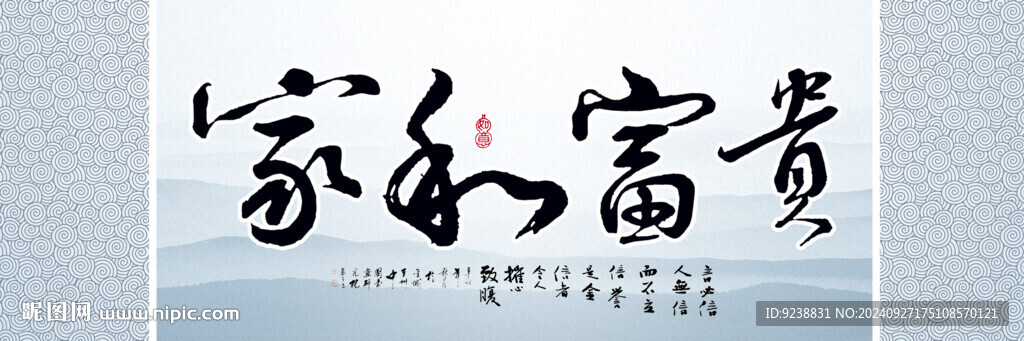 家和富貴
如意
言必信
人無信
而不立
信譽
是金
信者
令人
擁心
致暖
昵图网
www.nipic.com
ID:9238831 NO:20240927175108570121